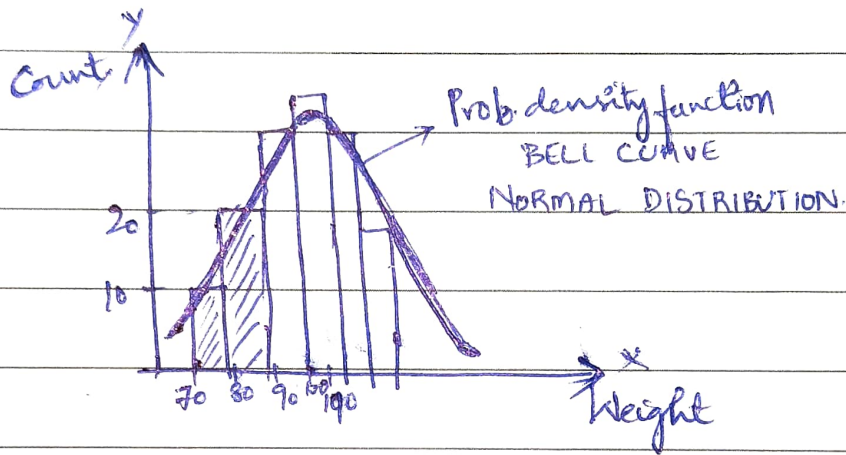 Y
Count
Prob. density function
BELL CURVE
NORMAL DISTRIBUTION.
20
10
X
70 80 90 100 190
Weight